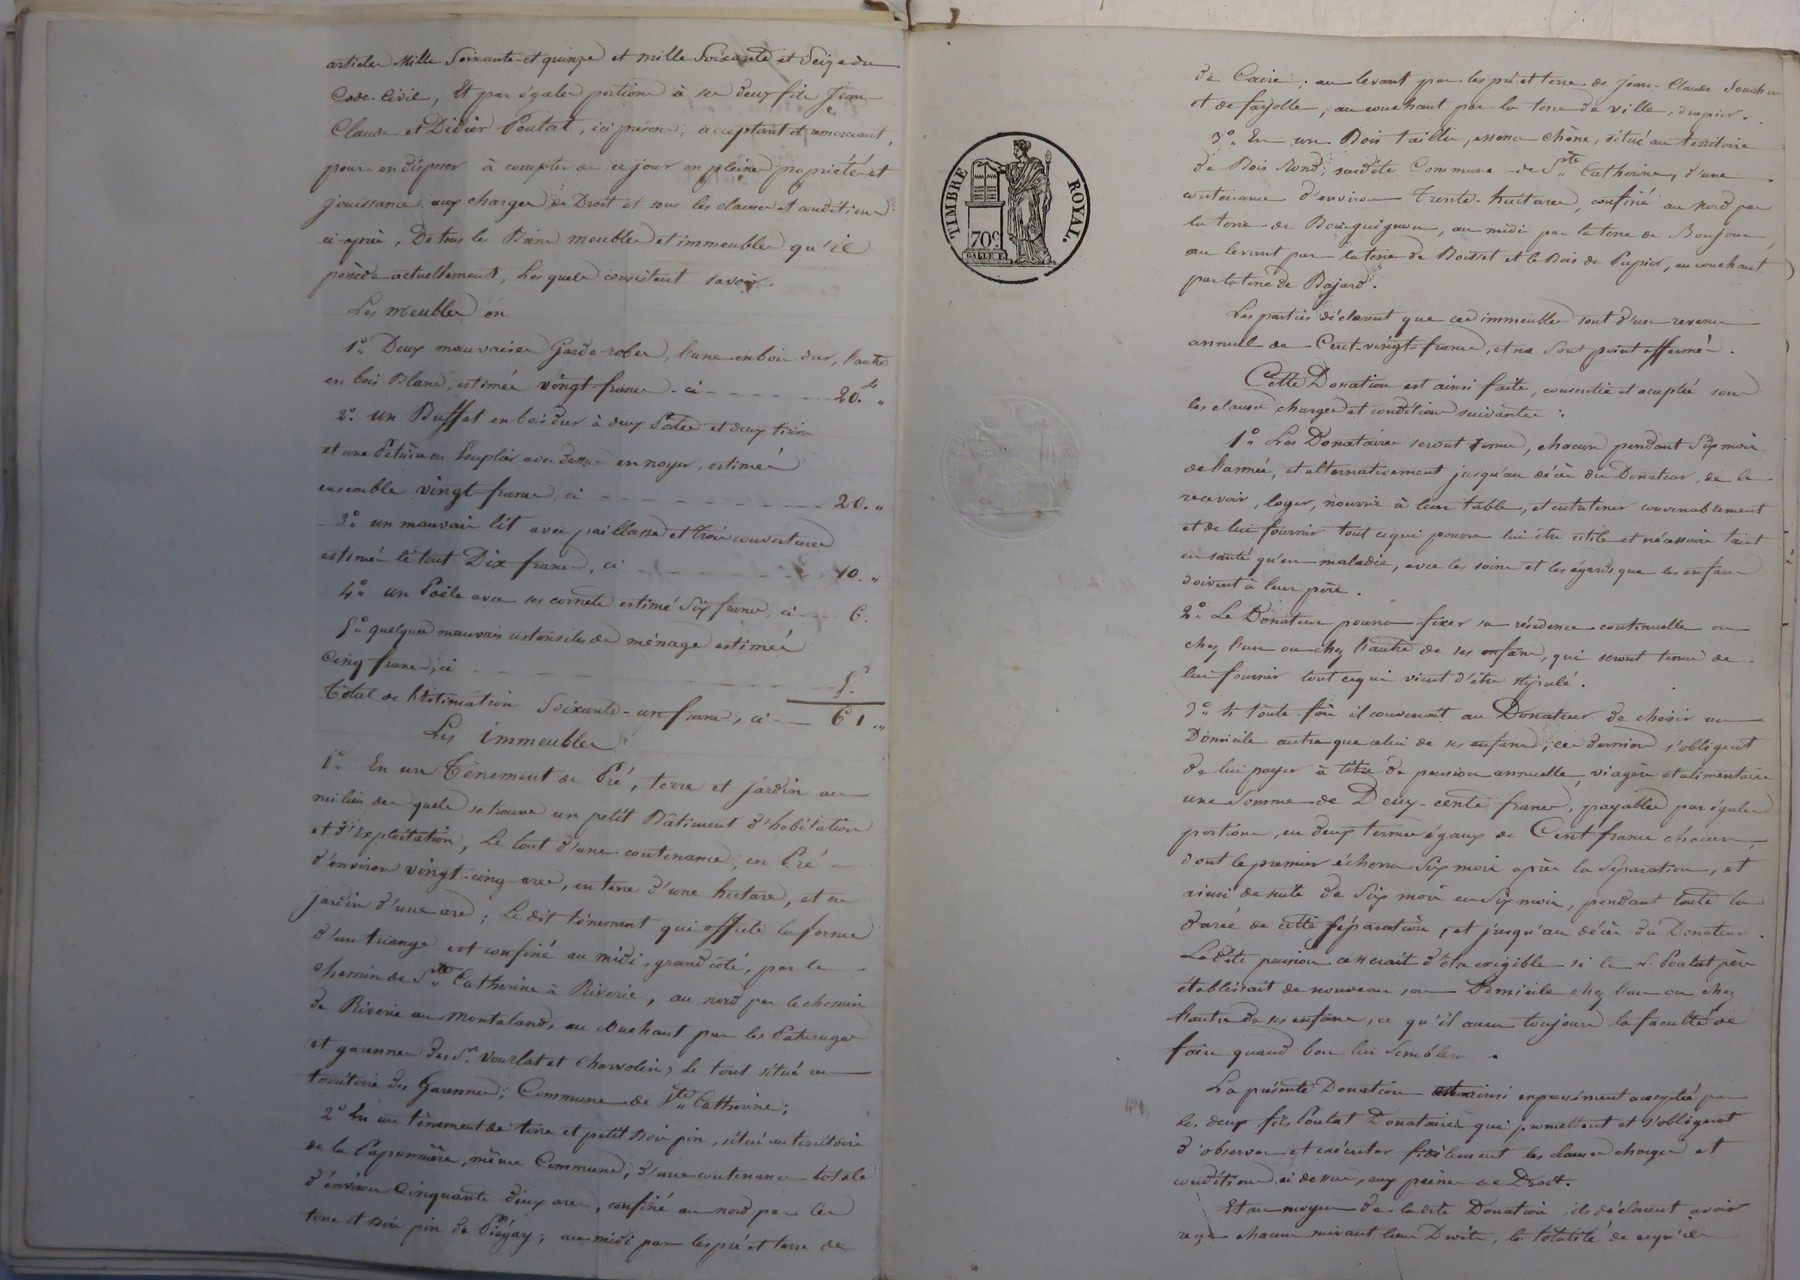 article Mille Soixante et quinze et mille Soixante et Seize du
Code Civil, Et par égales portions à ses deux fils Jean-
Claude et Didier Poulat, ici présens, acceptant et remerciant,
pour en disposer à compter de ce jour en pleine propriété et
jouissance aux charges de Droit et sous les clauses et conditions
ci-après, De tous les Biens meubles et immeubles qu'il
possède actuellement, Lesquels consistent savoir.
Les meubles en
1.° Deux mauvaises Garde-robes, l'une en bois dur, l'autre
en bois Blanc, estimés vingt francs ci 20.fs „
2.° un Buffet en bois dur à deux Portes et deux tiroirs
et une Pétrière en Peuplier avec dessus en noyer, estimés
ensemble vingt francs, ci 20. „
3.° un mauvais lit avec paillasse et trois couvertures
estimés le tout Dix francs, ci 10. „
4.° un Poële avec ses cornets estimé Six francs, ci 6.
5.° quelques mauvais ustensiles de ménage estimés
Cinq francs, ci 5.
Total de l'estimation Soixante-un francs, ci 61. „
Les immeubles
1.° En un Tènement de Pré, terre et jardin au
milieu des quels se trouve un petit Bâtiment d'habitation
et d'Exploitation, Le tout d'une contenance, en Pré
d'environ vingt-cinq ares, en terre d'une hectare, et en
jardin d'une are; Le dit ténement qui affecte la forme
d'un triange est confiné au midi, grand côté, par le
chemin de Ste Catherine à Riverie, au nord par le chemin
de Riverie au Montaland, au Couchant par les Paturages
et garennes des Srs Vourlat et Charvolin, Le tout situé au
territoire des Garennes, Commune de Ste Catherine;
2.° En un tènement de terre et petit Bois pin, situé au territoire
de la Caponnière, même Commune, d'une contenance totale
d'environ Cinquante deux ares, confiné au nord par les
terre et Bois pin de Piégay; au midi par les pré et terre de
TIMBRE ROYAL.
70c.
de Caire; au levant par les pré et terre de Jean-Claude Souchon
et de fayolle; au couchant par la terre de ville, drapier.
3.° En un Bois taillis, essence chêne, situé au territoire
de Bois Rond, susdite Commune de Ste Catherine, d'une
contenance d'environ Trente-huit ares, confiné au Nord par
la terre de Bourguignon, au midi par la terre de Bonjour,
au levant par la terre de Boisset et le Bois de Pupier, au couchant
par la terre de Bajard.
Les parties déclarent que ces immeubles sont d'un revenu
annuel de Cent-vingt francs, et ne sont point affermés.
Cette Donation est ainsi faite, consentie et acceptée sous
les clauses charges et conditions suivantes:
1.° Les Donataires seront tenus, chacun pendant Six mois
de l'année, et alternativement jusqu'au décès du Donateur, de le
recevoir, loger, nourrir à leur table, et entretenir convenablement
et de lui fournir tout ce qui pourra lui être utile et nécessaire tant
en santé qu'en maladie, avec les soins et les égards que les enfans
doivent à leur père.
2.° Le Donateur pourra fixer sa résidence continuelle ou
chez l'un ou chez l'autre de ses enfans, qui seront tenus de
lui fournir tout ce qui vient d'être stipulé.
3.° Si toute-fois il convenait au Donateur de choisir un
Domicile autre que celui de ses enfans, ces derniers s'obligent
de lui payer à titre de pension annuelle, viagère et alimentaire
une somme de Deux-cents francs, payables par égales
portions, en deux termes égaux de Cent francs chacun,
dont le premier échoira Six mois après la Séparation, et
ainsi de suite de Six mois en Six mois, pendant toute la
durée de cette séparation, et jusqu'au décès du Donateur.
La dite pension cesserait d'être exigible si le S. Poulat père
établissait de nouveau son Domicile chez l'un ou chez
l'autre de ses enfans, ce qu'il aura toujours la faculté de
faire quand bon lui Semblera.
La présente Donation est ainsi expressément acceptée par
les deux fils Poulat Donataires qui promettent et s'obligent
d'observer et exécuter fidèlement les clauses charges et
conditions ci dessus, aux peines de Droit.
Et au moyen de la dite Donation, ils déclarent avoir
reçu chacun suivant leurs Droits, la totalité de ce qu'il